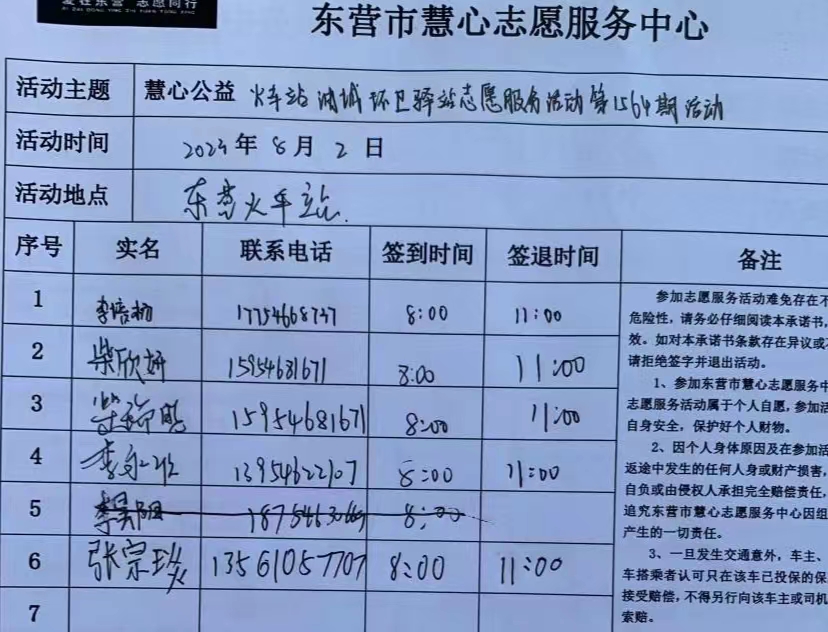 爱在东营 志愿同行
AI ZAI DONG YING ZHI YUAN TONG XING
东营市慧心志愿服务中心
活动主题 慧心公益 火车站油城环卫驿站志愿服务活动第1564期活动
活动时间 2024年8月2日
活动地点 东营火车站.
序号 实名 联系电话 签到时间 签退时间 备注
1 李培杨 17754668737 8:00 11:00
2 柴欣妍 15954681671 8:00 11:00
3 柴 15954681671 8:00 11:00
4 李 13954622107 8:00 11:00
5 李昊阳 8:00
6 张宗 13561057707 8:00 11:00
7
参加志愿服务活动难免存在不
危险性，请务必仔细阅读本承诺书，
效。如对本承诺书条款存在异议或不
请拒绝签字并退出活动。
1、参加东营市慧心志愿服务中
志愿服务活动属于个人自愿，参加活
自身安全，保护好个人财物。
2、因个人身体原因及在参加活
返途中发生的任何人身或财产损害，
自负或由侵权人承担完全赔偿责任，
追究东营市慧心志愿服务中心因组
产生的一切责任。
3、一旦发生交通意外，车主、
车搭乘者认可只在该车已投保的保
接受赔偿，不得另行向该车主或司机
索赔。